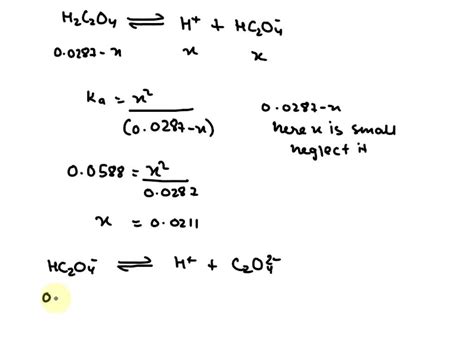 H₂C₂O₄ ⇌ H⁺ + HC₂O₄⁻
0.0287-x x x
Ka = x² / (0.0287-x)
0.0287-x
here x is small
neglect it
0.0588 = x² / 0.0287
x = 0.0211
HC₂O₄⁻ ⇌ H⁺ + C₂O₄²⁻
0.